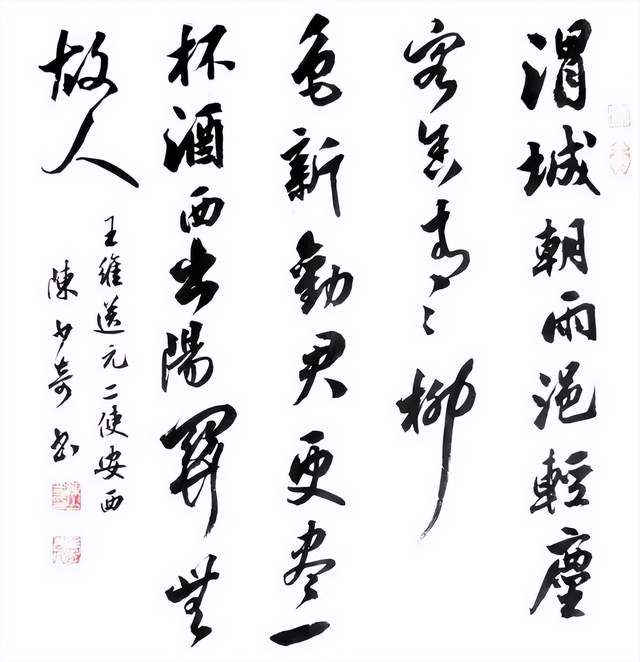 渭城朝雨浥輕塵
客舍青々柳
色新勸君更盡一
杯酒西出陽關無
故人
王維送元二使安西
陳少奇書